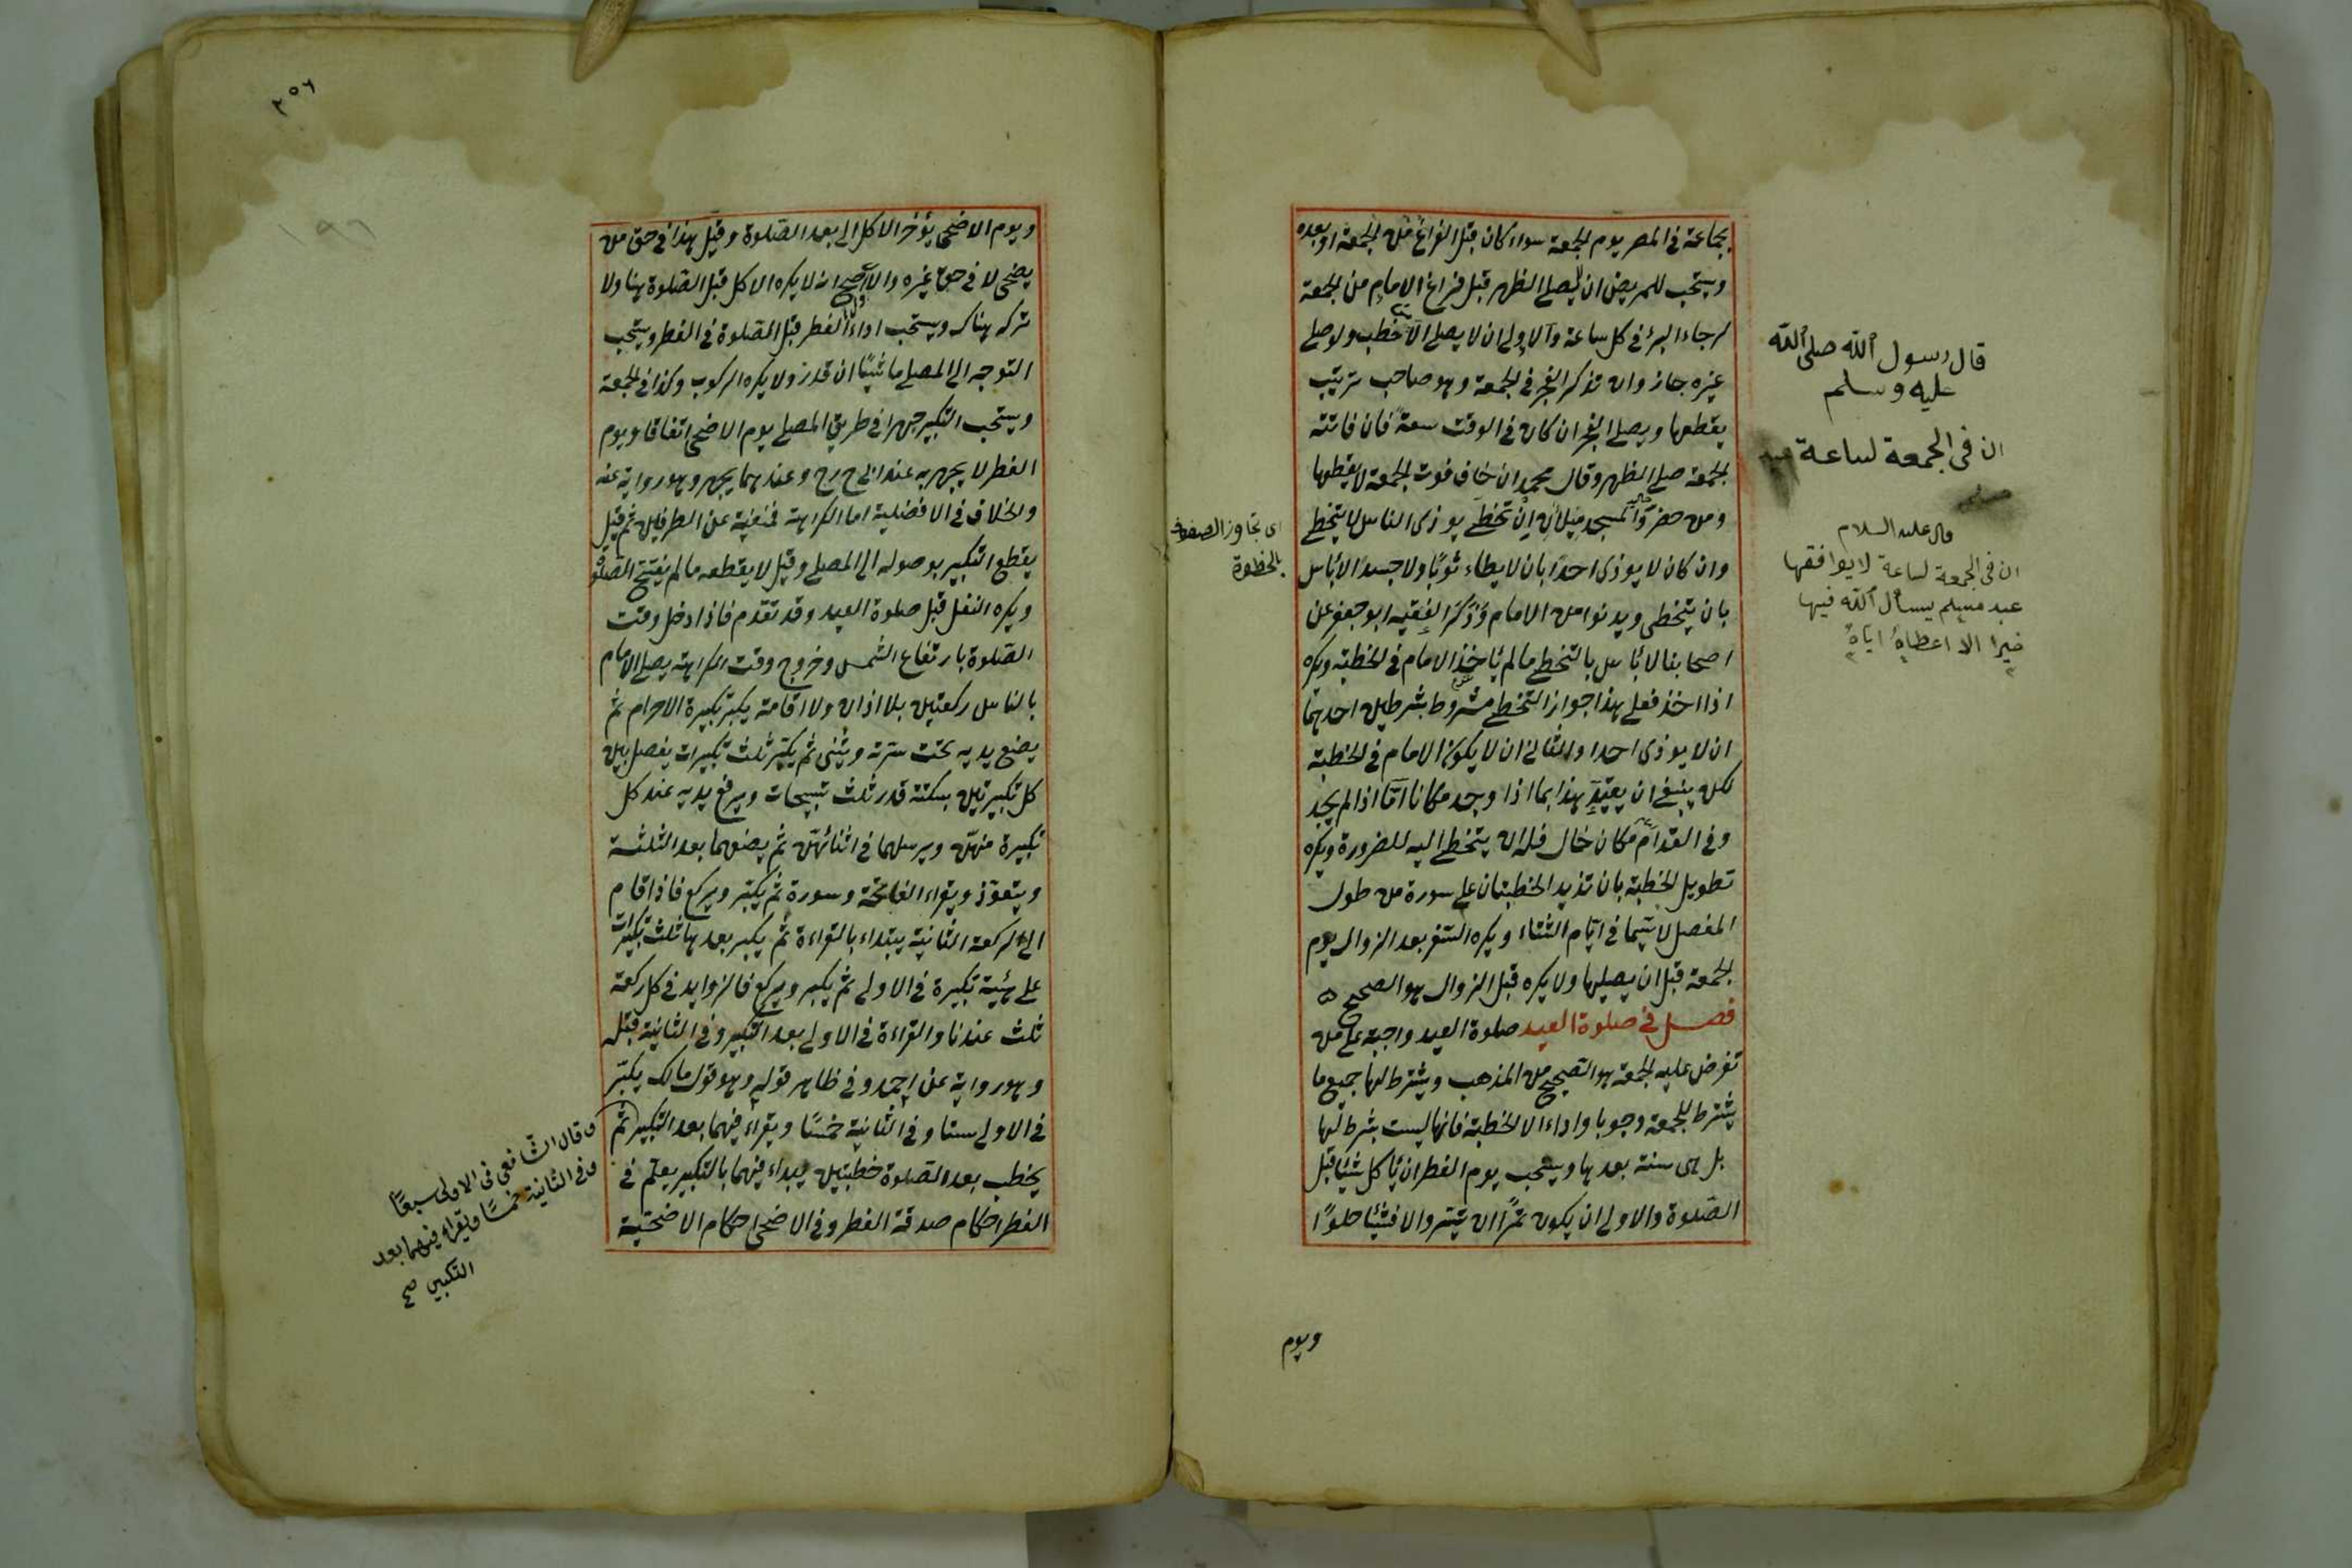 بجماعة فى المصر يوم الجمعة سواء كان قبل الفراغ من الجمعة او بعده
ويستحب للمريض ان يصلى الظهر قبل فراغ الامام من الجمعة
لرجاء البرء فى كل ساعة والاولى ان لا يصلى الا من خطب ولو صلى
غيره جاز وان تذكر الفجر فى الجمعة وهو صاحب ترتيب
يقطعها ويصلى الفجر ان كان فى الوقت سعة فان فاتته
الجمعة صلى الظهر وقال محمد ان خاف فوت الجمعة لا يقطعها
ومن حضر والمسجد ملآن ان تخطى يوذى الناس لا يتخطى
وان كان لا يوذى احدا بان لا يطاء ثوبا ولا جسدا لا بأس
بان يتخطى ويدنوا من الامام وذكر الفقيه ابو جعفر عن
اصحابنا لا بأس بالتخطى ما لم يأخذ الامام فى الخطبة ويكره
اذا اخذ فعلى هذا جواز التخطى مشروط بشرطين احدهما
ان لا يوذى احدا والثانى ان لا يكون الامام فى الخطبة
لكن ينبغى ان يقيد هذا بما اذا وجد مكانا اما اذا لم يجد
وفى القدام مكان خال فله ان يتخطى اليه للضرورة ويكره
تطويل الخطبة بان تزيد الخطبتان على سورة من طول
المفصل لا سيما فى ايام الشتاء ويكره السفر بعد الزوال يوم
الجمعة قبل ان يصليها ولا يكره قبل الزوال هو الصحيح
فصل فى صلوة العيد صلوة العيد واجبة على من
تفرض عليه الجمعة هو الصحيح من المذهب ويشترط لها جميع ما
يشترط للجمعة وجوبا واداء الا الخطبة فانها ليست بشرط لها
بل هى سنة بعدها ويستحب يوم الفطر ان يأكل شيئا قبل
الصلوة والاولى ان يكون تمرا ان تيسر والا فشيئا حلوا
ويوم
قال رسول الله صلى الله
عليه وسلم
ان فى الجمعة لساعة
قال عليه السلام
ان فى الجمعة لساعة لا يوافقها
عبد مسلم يسأل الله فيها
خيرا الا اعطاه اياه
اى تجاوز الصفوف
بالخطوة
٢٥٦
١٩٦
ويوم الاضحى يؤخر الاكل الى بعد الصلوة وقيل هذا فى حق من
يضحى لا فى حق غيره والاصح انه لا يكره الاكل قبل الصلوة هنا ولا
تركه هناك ويستحب اداء الفطر قبل الصلوة فى الفطر ويستحب
التوجه الى المصلى ماشيا ان قدر ولا يكره الركوب وكذا فى الجمعة
ويستحب التكبير جهرا فى طريق المصلى يوم الاضحى اتفاقا ويوم
الفطر لا يجهر به عند ابى ح رح وعندهما يجهر وهو رواية عنه
والخلاف فى الافضلية اما الكراهة فمنفية عن الطرفين ثم قيل
يقطع التكبير بوصوله الى المصلى وقيل لا يقطعه ما لم يفتتح الصلوة
ويكره النفل قبل صلوة العيد وقد تقدم فاذا دخل وقت
الصلوة بارتفاع الشمس وخروج وقت الكراهة يصلى الامام
بالناس ركعتين بلا اذان ولا اقامة يكبر تكبيرة الاحرام ثم
يضع يديه تحت سرته ويثنى ثم يكبر ثلث تكبيرات يفصل بين
كل تكبيرتين بسكتة قدر ثلث تسبيحات ويرفع يديه عند كل
تكبيرة منهن ويرسلهما فى اثنائهن ثم يضعهما بعد الثلثة
ويتعوذ ويقراء الفاتحة وسورة ثم يكبر ويركع فاذا قام
الى الركعة الثانية يبتداء بالقراءة ثم يكبر بعدها ثلث تكبيرات
على هيئة تكبيرة فى الاولى ثم يكبر ويركع فالزوايد فى كل ركعة
ثلث عندنا والقراءة فى الاولى بعد التكبير وفى الثانية قبله
وهو رواية عن احمد وفى ظاهر قوله وهو قول مالك يكبر
فى الاولى ستا وفى الثانية خمسا ويقراء فيهما بعد التكبير ثم
يخطب بعد الصلوة خطبتين يبداء فيهما بالتكبير يعلم فى
الفطر احكام صدقة الفطر وفى الاضحى احكام الاضحية
وقال الشافعى فى الاولى سبعا
وفى الثانية خمسا ويقراء فيهما بعد
التكبير صح